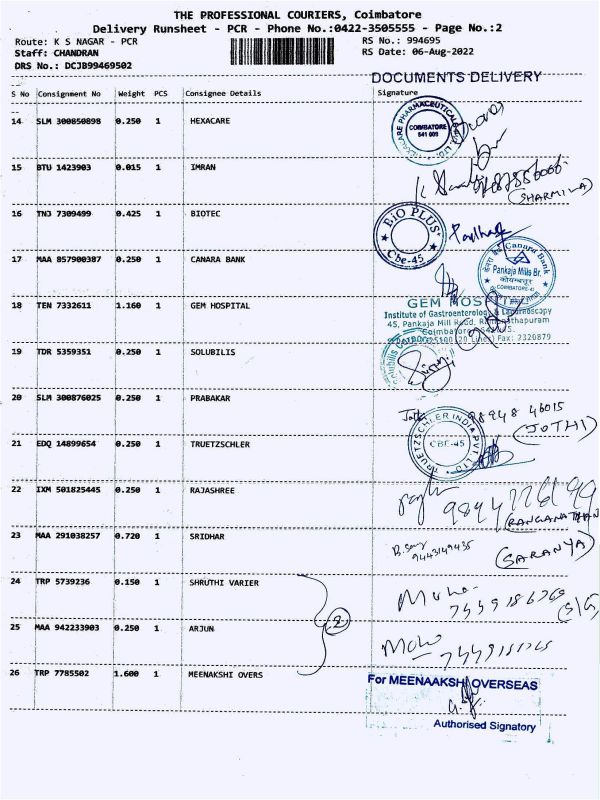 THE PROFESSIONAL COURIERS, Coimbatore
Delivery Runsheet - PCR - Phone No.:0422-3505555 - Page No.:2
Route: K S NAGAR - PCR
RS No.: 994695
Staff: CHANDRAN
RS Date: 06-Aug-2022
DRS No.: DCJB99469502
DOCUMENTS DELIVERY
S No Consignment No Weight PCS Consignee Details Signature
14 SLM 300850898 0.250 1 HEXACARE
COIMBATORE
641 009
15 BTU 1423903 0.015 1 IMRAN
(SHARMILA)
16 TNJ 7309499 0.425 1 BIOTEC
BIO PLUS
Cbe-45
17 MAA 857900387 0.250 1 CANARA BANK
Canara Bank
Pankaja Mills Br.
कोयम्बत्तूर
COIMBATORE-45
18 TEN 7332611 1.160 1 GEM HOSPITAL
GEM HOSP
Institute of Gastroenterology & Laparoscopy
45, Pankaja Mill Road, Ramanathapuram
Coimbatore
Fax: 2320879
19 TDR 5359351 0.250 1 SOLUBILIS
20 SLM 300876025 0.250 1 PRABAKAR
98948 46015
(JOTHI)
21 EDQ 14899654 0.250 1 TRUETZSCHLER
TRUETZSCHLER INDIA PVT. LTD.
CBE-45
22 IXM 501825445 0.250 1 RAJASHREE
(RANGANATHAN)
23 MAA 291038257 0.720 1 SRIDHAR
9443149435
(SARANYA)
24 TRP 5739236 0.150 1 SHRUTHI VARIER
25 MAA 942233903 0.250 1 ARJUN
2
26 TRP 7785502 1.600 1 MEENAKSHI OVERS
For MEENAAKSHI OVERSEAS
Authorised Signatory